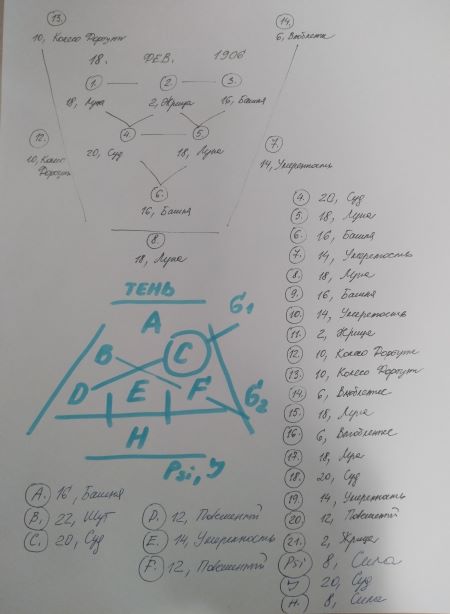 13. 14.
10, Колесо Фортуны 6, Влюблен
18. ФЕВ. 1906
1. 2. 3.
18, Луна 2, Жрица 16, Башня
12. 4. 5. 7.
20, Суд 18, Луна
10, Колесо Фортуны 14, Умеренность
6.
16, Башня
8.
18, Луна
4. 20, Суд
5. 18, Луна
6. 16, Башня
7. 14, Умеренность
8. 18, Луна
9. 16, Башня
10. 14, Умеренность
11. 2, Жрица
12. 10, Колесо Фортун
13. 10, Колесо Фортун
14. 6, Влюбленные
15. 18, Луна
16. 6, Влюбленные
17. 18, Луна
18. 20, Суд
19. 14, Умеренность
20. 12, Повешенный
21. 2, Жрица
Psi 8, Сила
У 20, Суд
Н. 8, Сила
ТЕНЬ
A G1
B C
D E F G2
H
Psi, У
А. 16, Башня
В. 22, Шут
С. 20, Суд
D. 12, Повешенный
Е. 14, Умеренность
F. 12, Повешенный